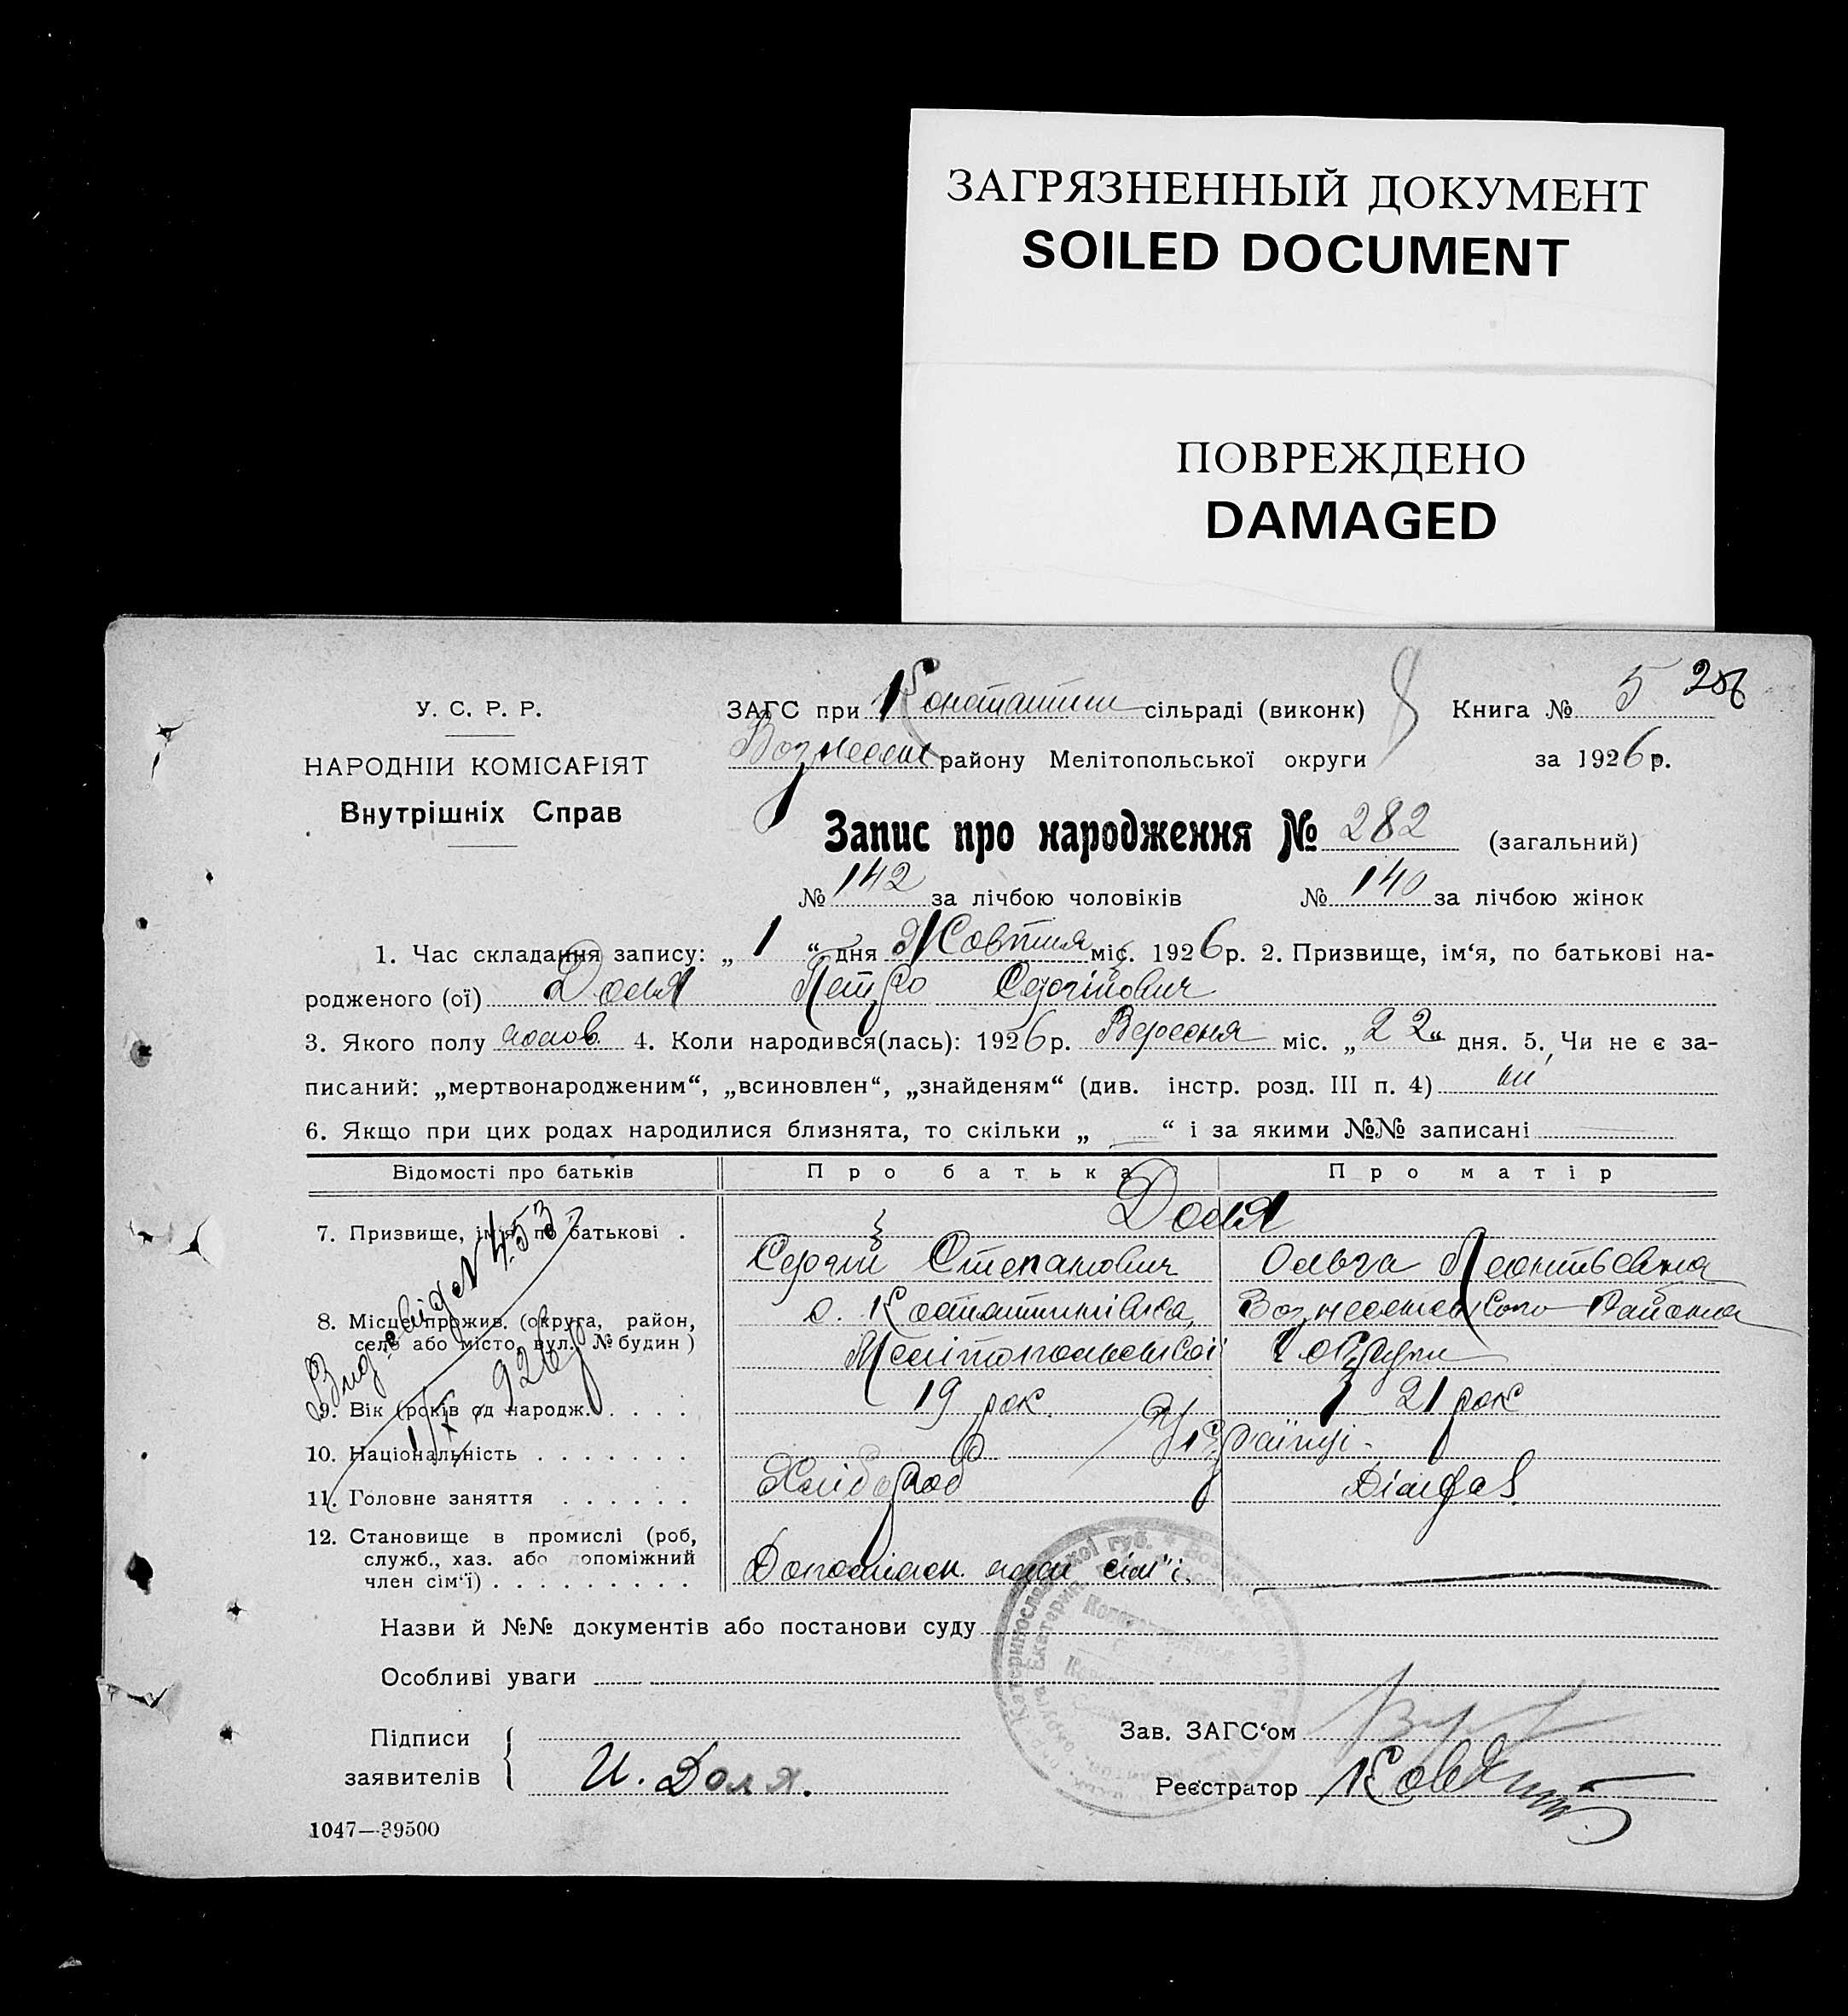 ЗАГРЯЗНЕННЫЙ ДОКУМЕНТ
SOILED DOCUMENT
ПОВРЕЖДЕНО
DAMAGED
У. С. Р. Р.
НАРОДНІЙ КОМІСАРІЯТ
Внутрішніх Справ
ЗАГС при Константин сільраді (виконк) Книга № 5 286
Вознесен району Мелітопольської округи за 1926 р.
Запис про народження № 282 (загальний)
№ 142 за лічбою чоловіків № 140 за лічбою жінок
1. Час складання запису: „ 1 “ дня Жовтня міс. 1926 р. 2. Призвище, ім‘я, по батькові на-
родженого (ої) Доля Петро Сергійович
3. Якого полу чолов. 4. Коли народився(лась): 1926 р. Вересня міс. „ 22 “ дня. 5. Чи не є за-
писаний: „мертвонародженим“, „всиновлен“, „знайденям“ (див. інстр. розд. III п. 4) ні
6. Якщо при цих родах народилися близнята, то скільки „ — “ і за якими №№ записані —
Відомості про батьків Про батька Про матір
7. Призвище, ім‘я, по батькові . Доля
Сергій Степанович Ольга Леонтьевна
8. Місце прожив. (округа, район, с. Костянтинівка, Вознесенського Района
село або місто, вул. № будин) Мелітопольської округи
9. Вік (років од народж. . . . . 19 рок. 21 рок
10. Національність . . . . . . . Українці
11. Головне заняття . . . . . . Хлібороб Діяхаз.
12. Становище в промислі (роб,
служб., хаз. або допоміжний
член сім‘ї) . . . . . . . . . Допоміжн. член сім"ї.
Вид. свід № 453
1/X 926 р
Назви й №№ документів або постанови суду
Особливі уваги
Підписи
заявителів И. Доля.
Зав. ЗАГС‘ом
Реєстратор
1047—39500